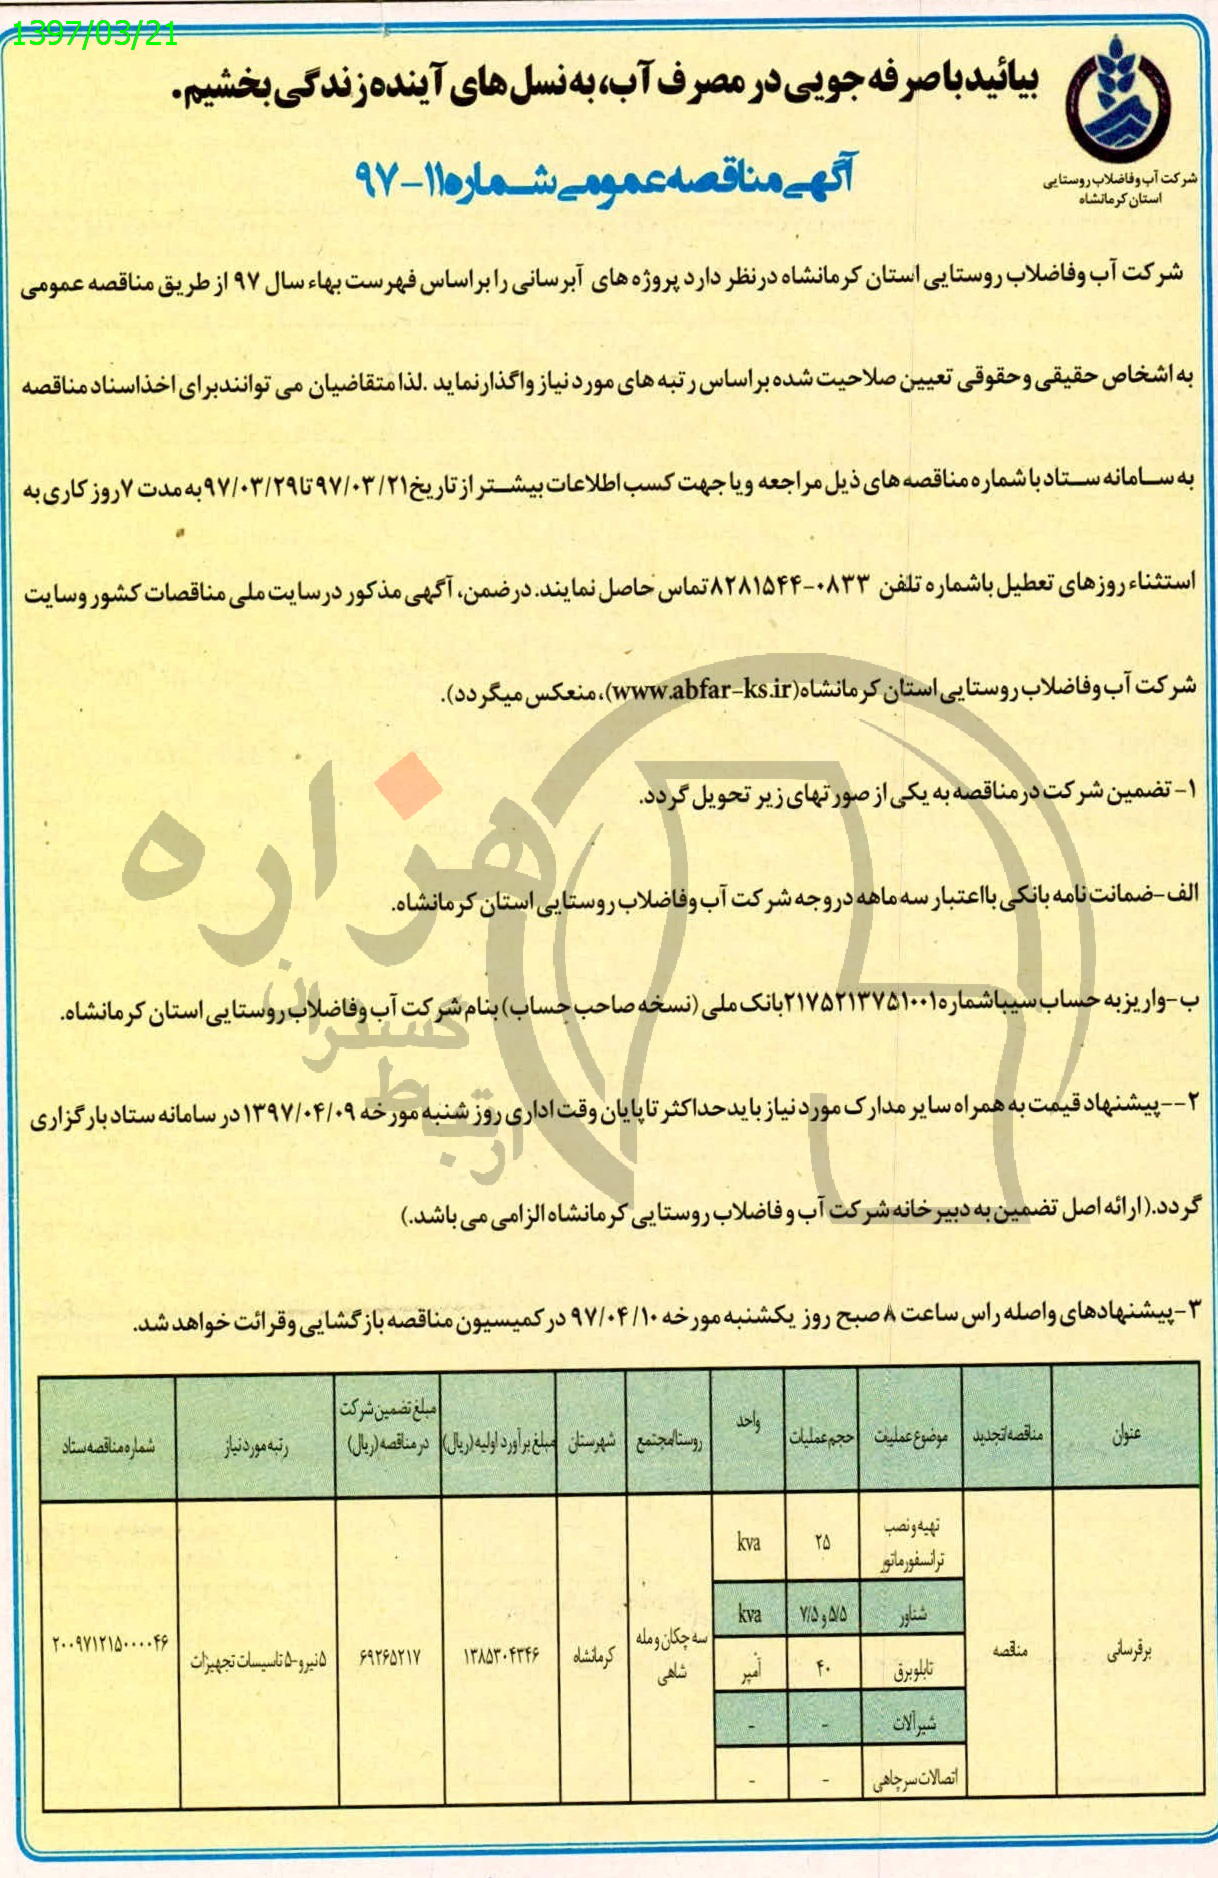 1397/03/21
بیائید با صرفه جویی در مصرف آب، به نسل های آینده زندگی بخشیم.
شرکت آب و فاضلاب روستایی
استان کرمانشاه
آگهی مناقصه عمومی شماره ۱۱-۹۷
شرکت آب وفاضلاب روستایی استان کرمانشاه درنظر دارد پروژه های آبرسانی را براساس فهرست بهاء سال ۹۷ از طریق مناقصه عمومی
به اشخاص حقیقی وحقوقی تعیین صلاحیت شده براساس رتبه های مورد نیاز واگذارنماید .لذا متقاضیان می توانندبرای اخذاسناد مناقصه
به سامانه ستاد با شماره مناقصه های ذیل مراجعه ویا جهت کسب اطلاعات بیشتر از تاریخ ۹۷/۰۳/۲۱ تا ۹۷/۰۳/۲۹ به مدت ۷ روز کاری به
استثناء روزهای تعطیل باشماره تلفن ۰۸۳۳-۸۲۸۱۵۴۴ تماس حاصل نمایند. درضمن، آگهی مذکور درسایت ملی مناقصات کشور وسایت
شرکت آب وفاضلاب روستایی استان کرمانشاه(www.abfar-ks.ir)، منعکس میگردد).
۱- تضمین شرکت درمناقصه به یکی از صورتهای زیر تحویل گردد.
الف-ضمانت نامه بانکی بااعتبار سه ماهه دروجه شرکت آب وفاضلاب روستایی استان کرمانشاه.
ب-واریزبه حساب سیباشماره ۲۱۷۵۲۱۳۷۵۱۰۰۱ بانک ملی (نسخه صاحب حساب) بنام شرکت آب وفاضلاب روستایی استان کرمانشاه.
۲--پیشنهاد قیمت به همراه سایر مدارک مورد نیاز بایدحداکثر تاپایان وقت اداری روز شنبه مورخه ۱۳۹۷/۰۴/۰۹ در سامانه ستاد بارگزاری
گردد.(ارائه اصل تضمین به دبیرخانه شرکت آب وفاضلاب روستایی کرمانشاه الزامی می باشد.)
۳-پیشنهادهای واصله راس ساعت ۸ صبح روز یکشنبه مورخه ۹۷/۰۴/۱۰ درکمیسیون مناقصه بازگشایی وقرائت خواهد شد.
هزاره
ارتباط گستران
عنوان مناقصه/تجدید موضوع عملیات حجم عملیات واحد روستا/مجتمع شهرستان مبلغ برآورد اولیه (ریال) مبلغ تضمین شرکت در مناقصه (ریال) رتبه مورد نیاز شماره مناقصه ستاد
برقرسانی مناقصه تهیه و نصب ترانسفورماتور ۲۵ kva سه چکان و مله شاهی کرمانشاه ۱۳۸۵۳۰۴۳۴۶ ۶۹۲۶۵۲۱۷ ۵نیرو-۵ تاسیسات تجهیزات ۲۰۰۹۷۱۲۱۵۰۰۰۰۴۶
شناور ۵/۵ و ۷/۵ kva
تابلوبرق ۴۰ آمپر
شیرآلات - -
اتصالات سرچاهی - -